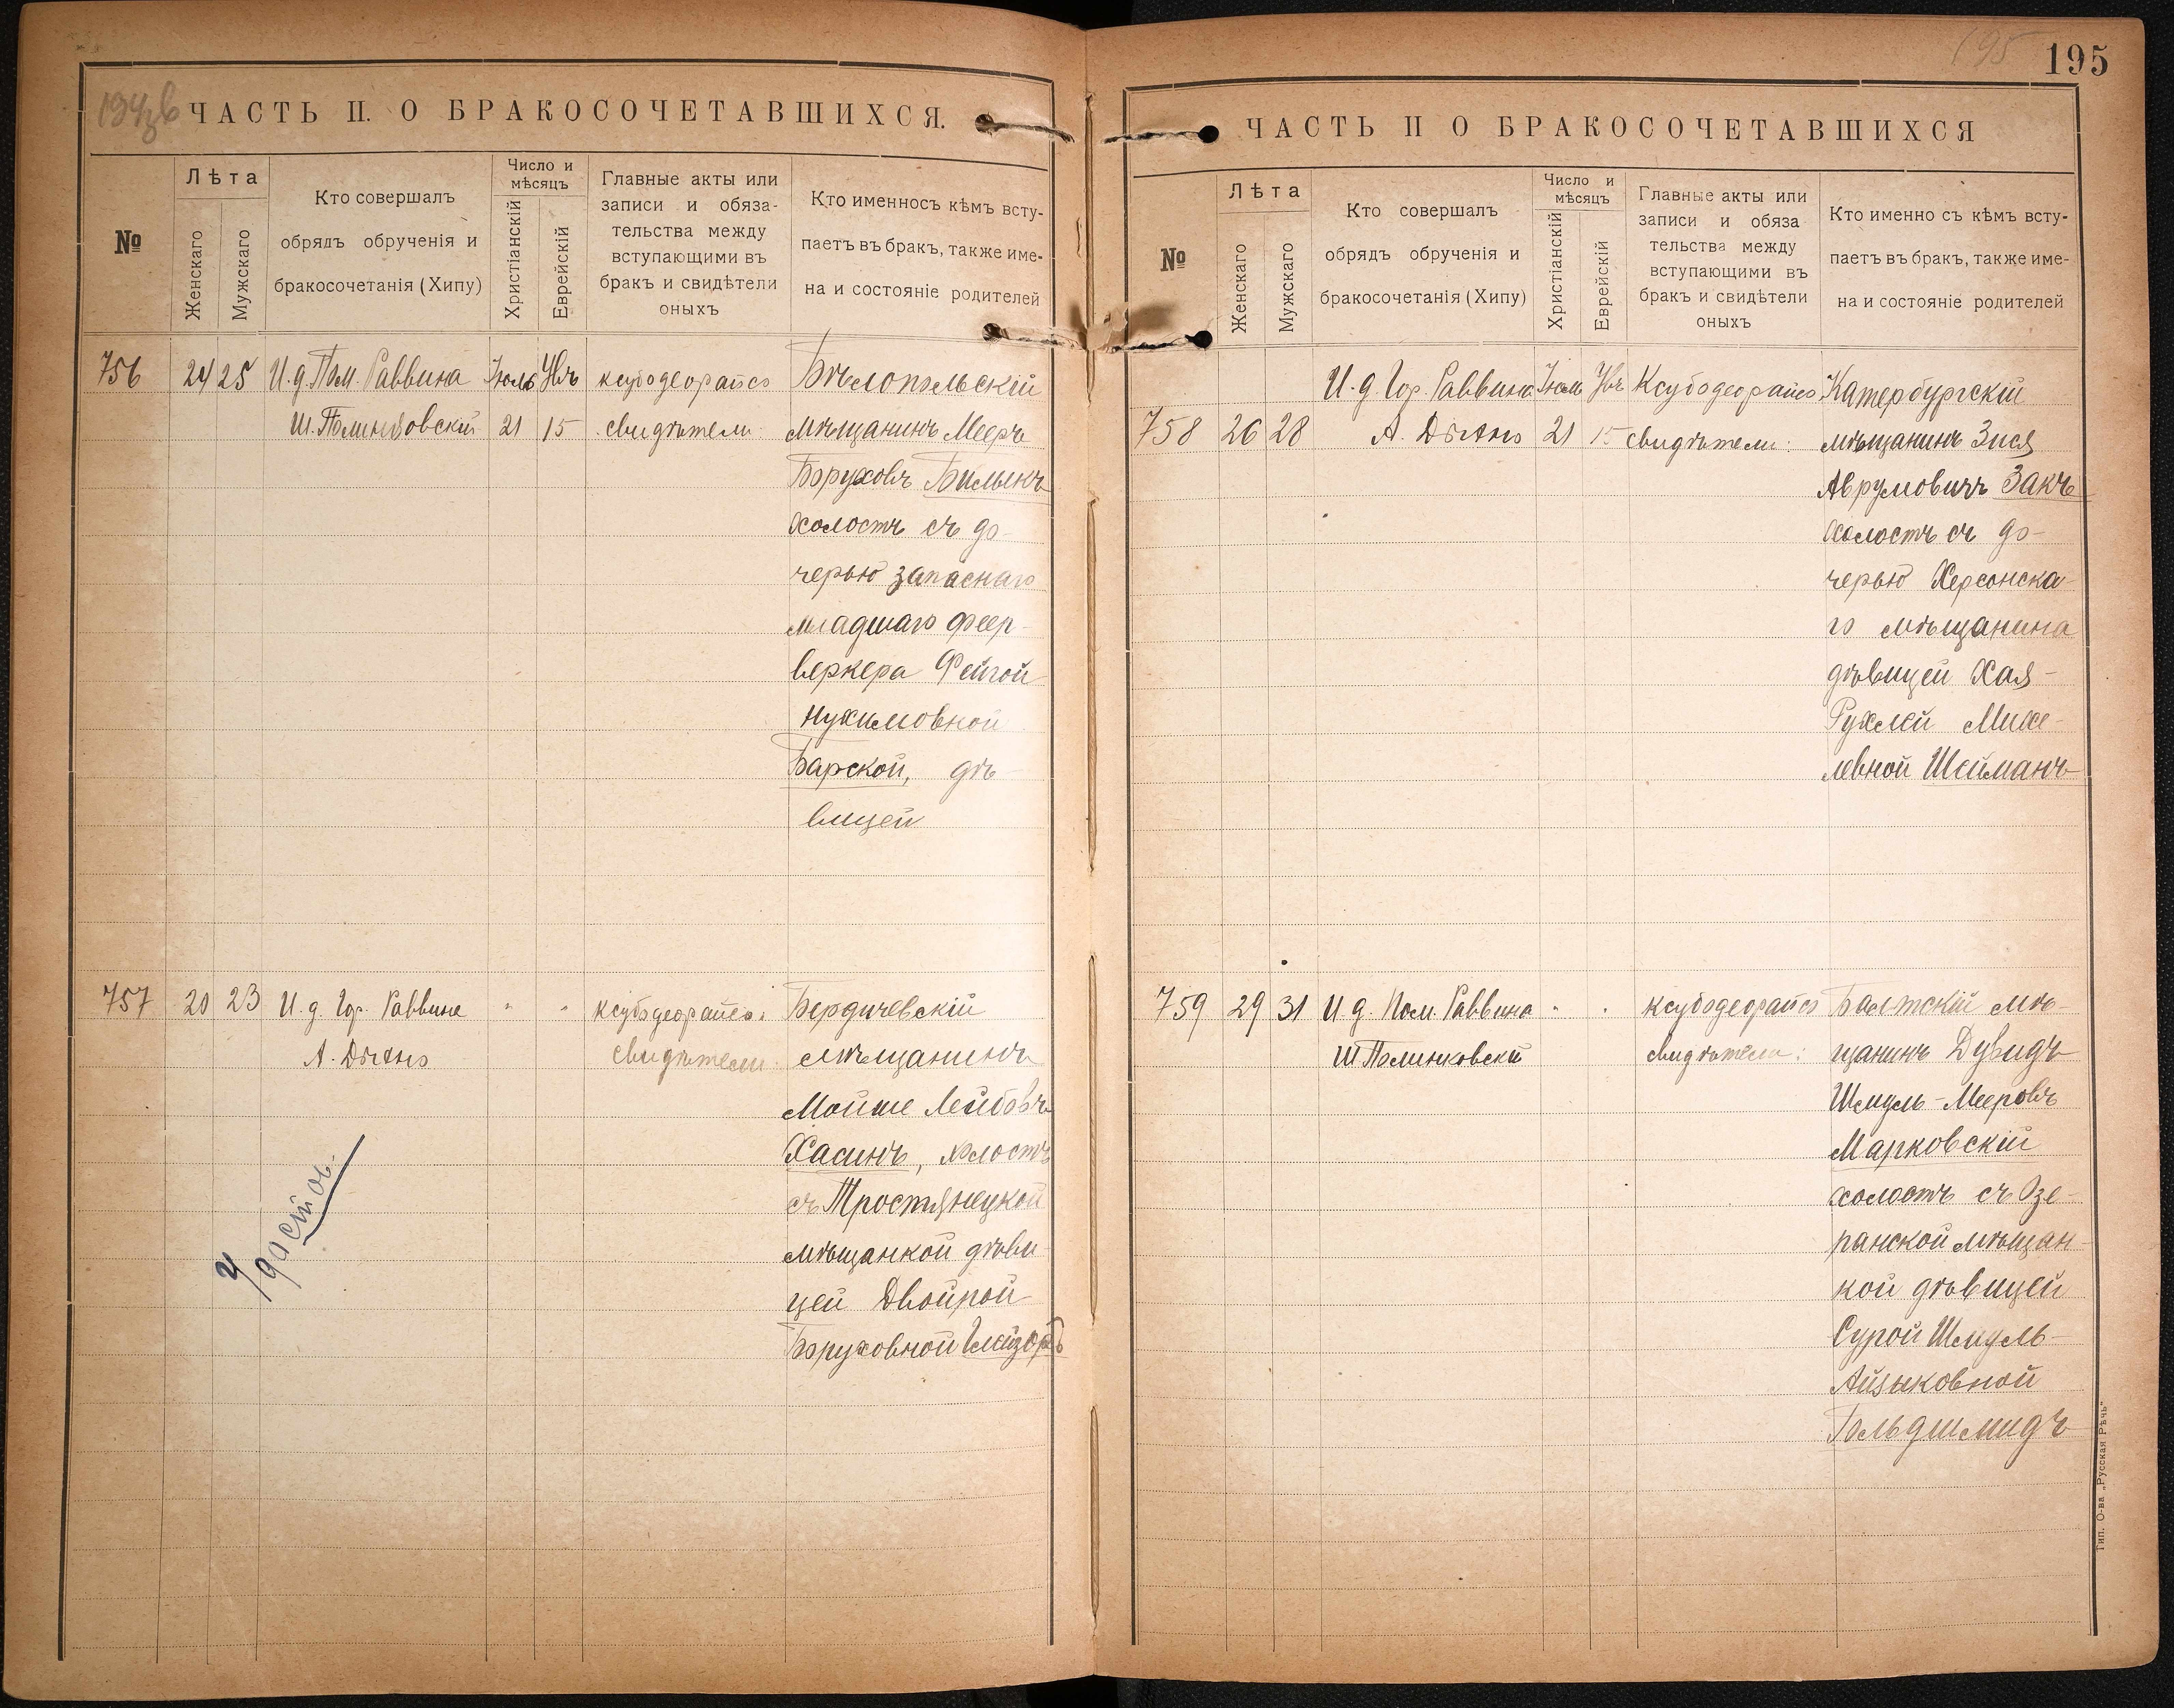 ЧАСТЬ II. О БРАКОСОЧЕТАВШИХСЯ.
№
Лѣта
Женскаго
Мужскаго
Кто совершалъ
обрядъ обрученія и
бракосочетанія (Хипу)
Число и
мѣсяцъ
Христіанскій
Еврейскій
Главные акты или
записи и обяза-
тельства между
вступающими въ
бракъ и свидѣтели
оныхъ
Кто именносъ кѣмъ всту-
паетъ въ бракъ, также име-
на и состояніе родителей
756 24 25 И. д. Пом. Раввина Іюль
21 15 свидѣтели
Бѣлопольскій
мѣщанинъ Мееръ
Боруховъ Бильикъ
холостъ съ до-
черью запаснаго
младшаго феер-
веркера Фейгой
Нухимовной
Барской, дѣ-
вицей
757 20 23 И. д. Гор. Раввина " " ксубодеорайсо.
свидѣтели
Бердичевскій
мѣщанинъ
Мойше Лейбовъ
Хасинъ, холостъ
съ Тростянецкой
мѣщанкой дѣви-
цей Двойрой
Боруховной Глейзеръ
195
ЧАСТЬ II О БРАКОСОЧЕТАВШИХСЯ
№
Лѣта
Женскаго
Мужскаго
Кто совершалъ
обрядъ обрученія и
бракосочетанія (Хипу)
Число и
мѣсяцъ
Христіанскій
Еврейскій
Главные акты или
записи и обяза
тельства между
вступающими въ
бракъ и свидѣтели
оныхъ
Кто именно съ кѣмъ всту-
паетъ въ бракъ, также име-
на и состояніе родителей
И. д. Гор. Раввина Іюль Ксубодеорайсо
758 26 28 21 15 свидѣтели:
Катербургскій
мѣщанинъ Зися
Аврумовичъ Закъ
холостъ съ до-
черью Херсонска-
го мѣщанина
дѣвицей Хая-
Рухлей Михе-
левной Шейманъ
759 29 31 И. д. Пом. Раввина " " ксубодеорайсо
Ш. Полинковскій свидѣтели:
Балтскій мѣ-
щанинъ Дувидъ
Шмуль-Мееровъ
Марковскій
холостъ съ Озе-
ранской мѣщан-
кой дѣвицей
Сурой Шмуль-
Айзыковной
Гольдшмидъ
Тип. О-ва „Русская Рѣчь"